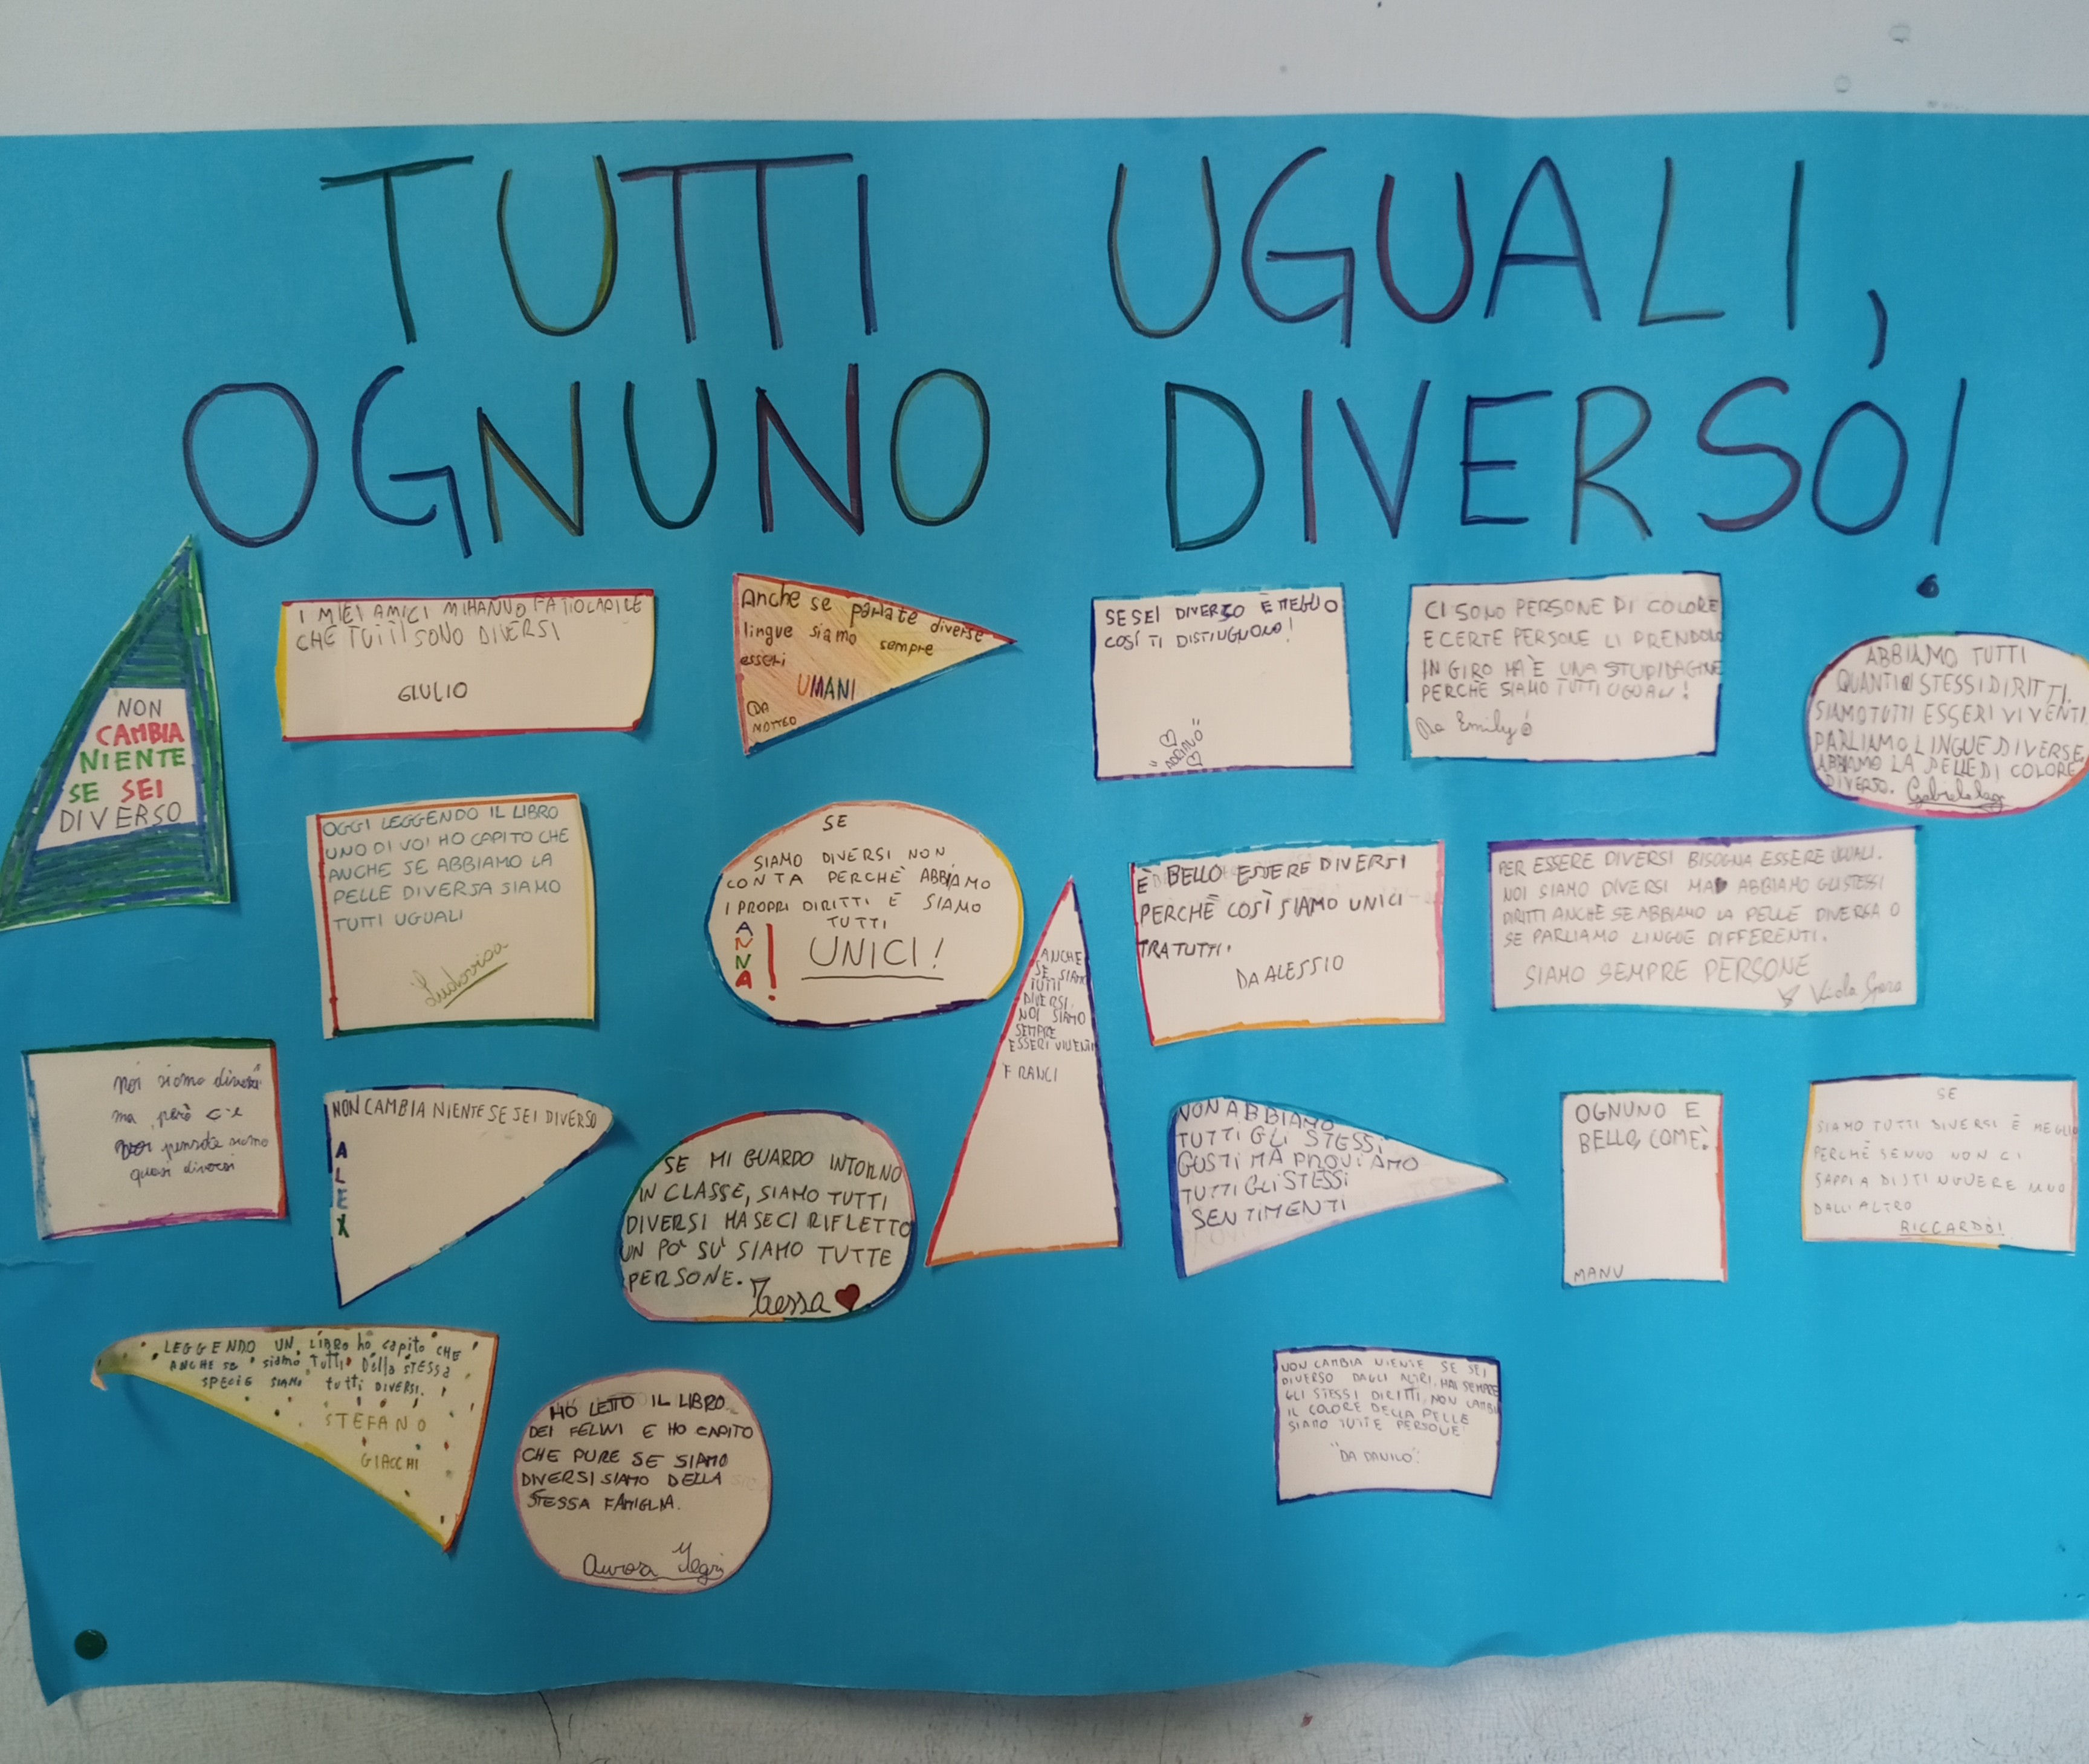 TUTTI UGUALI,
OGNUNO DIVERSO!
NON
CAMBIA
NIENTE
SE SEI
DIVERSO
I MIEI AMICI MI HANNO FATTO CAPIRE
CHE TUTTI SONO DIVERSI
GIULIO
Anche se parlate diverse
lingue siamo sempre
esseri
UMANI
DA
MATTEO
SE SEI DIVERSO È MEGLIO
COSÍ TI DISTINGUONO!
"ADRIANO"
CI SONO PERSONE DI COLORE
E CERTE PERSONE LI PRENDOLO
IN GIRO MA È UNA STUPIDAGINE
PERCHÈ SIAMO TUTTI UGUALI!
Da Emily
ABBIAMO TUTTI
QUANTI STESSI DIRITTI.
SIAMO TUTTI ESSERI VIVENTI
PARLIAMO LINGUE DIVERSE,
ABBIAMO LA PELLE DI COLORE
DIVERSO.
OGGI LEGGENDO IL LIBRO
UNO DI VOI HO CAPITO CHE
ANCHE SE ABBIAMO LA
PELLE DIVERSA SIAMO
TUTTI UGUALI
Ludovica
SE
SIAMO DIVERSI NON
CONTA PERCHÈ ABBIAMO
I PROPRI DIRITTI E SIAMO
TUTTI
UNICI!
ANNA!
ANCHE
SE SIAMO
TUTTI
DIVERSI
NOI SIAMO
SEMPRE
ESSERI VIVENTI
FRANCI
È BELLO ESSERE DIVERSI
PERCHÈ COSÌ SIAMO UNICI
TRA TUTTI.
DA ALESSIO
PER ESSERE DIVERSI BISOGNA ESSERE UGUALI.
NOI SIAMO DIVERSI MA ABBIAMO GLI STESSI
DIRITTI ANCHE SE ABBIAMO LA PELLE DIVERSA O
SE PARLIAMO LINGUE DIFFERENTI.
SIAMO SEMPRE PERSONE
Viola
noi siamo diversi
ma però c'e
pensate siamo
quasi diversi
NON CAMBIA NIENTE SE SEI DIVERSO
ALEX
SE MI GUARDO INTORNO
IN CLASSE, SIAMO TUTTI
DIVERSI MA SE CI RIFLETTO
UN PO' SU' SIAMO TUTTE
PERSONE.
Tessa
NON ABBIAMO
TUTTI GLI STESSI
GUSTI MA PROVIAMO
TUTTI GLI STESSI
SENTIMENTI
OGNUNO E
BELLO, COM'È.
MANU
SE
SIAMO TUTTI DIVERSI È MEGLIO
PERCHÈ SENNO NON CI
SAPPIA DISTINGUERE UNO
DALL'ALTRO
RICCARDO!
LEGGENDO UN LIBRO ho capito CHE
ANCHE SE siamo TUTTI Della STESSA
SPECIE SIAMO tutti DIVERSI.
STEFANO
GIACCHI
HO LETTO IL LIBRO
DEI FELWI E HO CAPITO
CHE PURE SE SIAMO
DIVERSI SIAMO DELLA
STESSA FAMIGLIA.
Aurora
NON CAMBIA NIENTE SE SEI
DIVERSO DAGLI ALTRI, HAI SEMPRE
GLI STESSI DIRITTI, NON CAMBI
IL COLORE DELLA PELLE
SIAMO TUTTE PERSONE
"DA DANILO".